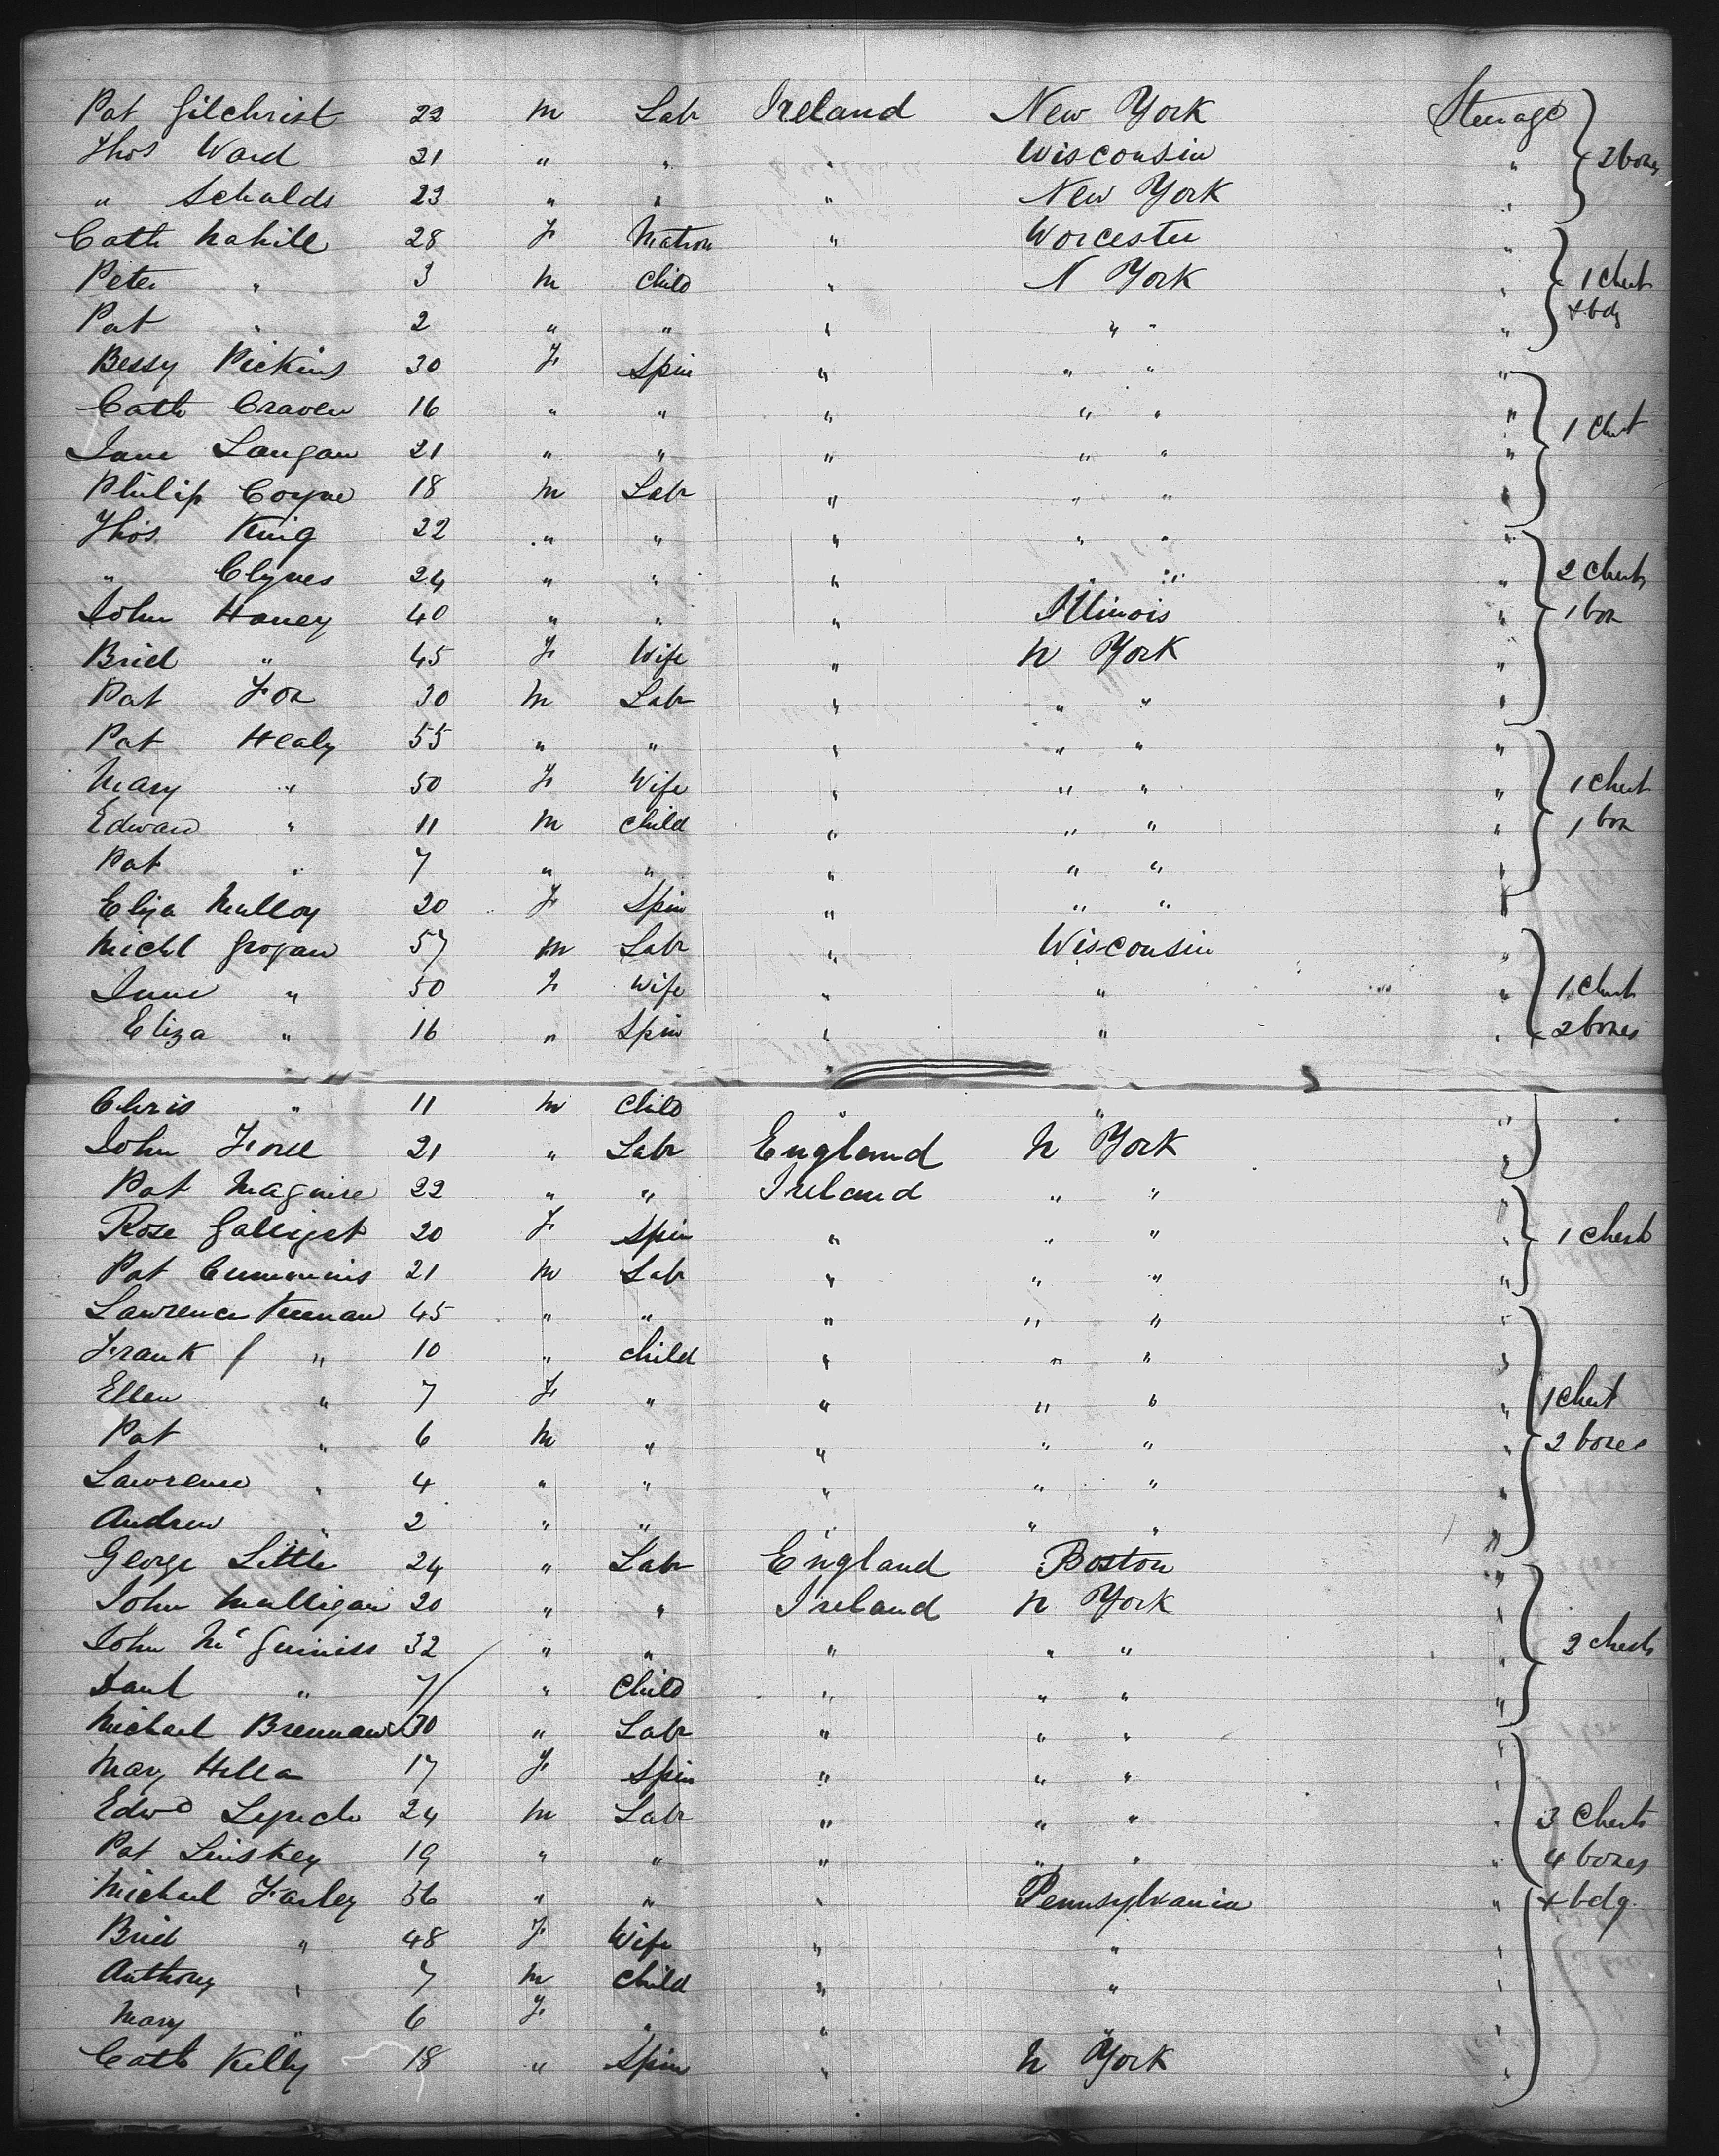 Pat Gilchrist 22 m Labr Ireland New York Steerage
Thos Ward 21 " " " Wisconsin " 2 boxes
" Schalds 23 " " " New York "
Cath Nahill 28 F Matron " Worcester "
Peter " 3 m Child " N York " 1 Chest
Pat " 2 " " " " " " & bdg
Bessy Pickins 30 F Spin " " " "
Cath Craven 16 " " " " " " 1 Chest
Jane Langan 21 " " " " " "
Philip Coyne 18 m Labr " " " "
Thos King 22 " " " " " "
" Clynes 24 " " " " " " 2 Chests
John Haney 40 " " " Illinois " 1 box
Brid " 45 F Wife " N York "
Pat Fox 30 m Labr " " " "
Pat Healy 55 " " " " " "
Mary " 50 F Wife " " " " 1 Chest
Edward " 11 m Child " " " " 1 box
Pat " 7 " " " " " "
Eliza Mulloy 20 F Spin " " " "
Michl Grogan 57 m Labr " Wisconsin "
Jane " 50 F Wife " " " 1 Chest
Eliza " 16 " Spin " " " 2 boxes
Chris " 11 m Child " " "
John 21 " Labr England N York "
Pat Maguire 22 " " Ireland " " "
Rose 20 F Spin " " " " 1 Chest
Pat Cummins 21 m Labr " " " "
Lawrence Keenan 45 " " " " " "
Frank " 10 " Child " " " "
Ellen " 7 F " " " " " 1 Chest
Pat " 6 m " " " " " 2 boxes
Lawrence " 4 " " " " " "
Andrew " 2 " " " " " "
George Little 24 " Labr England Boston "
John Mulligan 20 " " Ireland N York "
John McGuiniss 32 " " " " " " 2 Chests
Danl " 7 " Child " " " "
Michael Brennan 30 " Labr " " " "
Mary Hilla 17 F Spin " " " "
Edwd Lynch 24 m Labr " " " " 3 Chests
Pat Linskey 19 " " " " " " 4 boxes
Michael Farley 56 " " " Pennsylvania " & bdg.
Brid " 48 F Wife " " "
Anthony " 7 m Child " " "
Mary " 6 F " " " "
Cath Kelly 18 " Spin " N York "